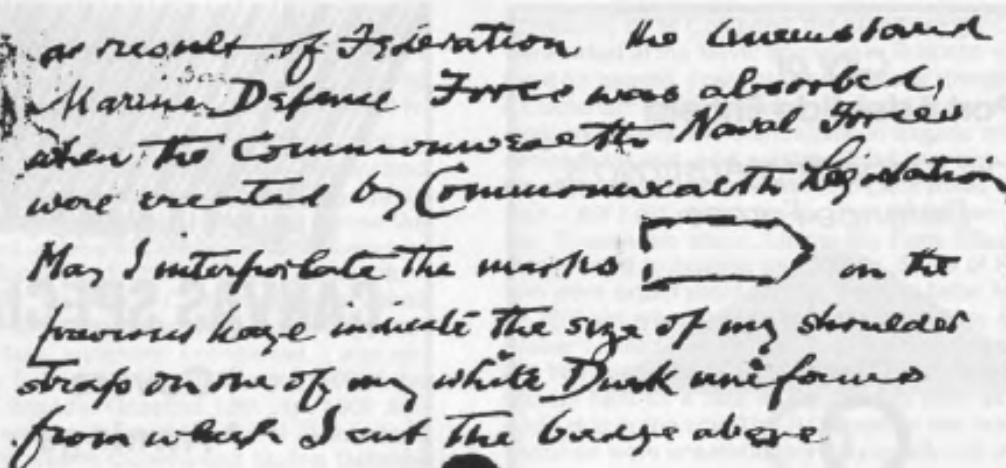 as result of Federation the Queensland
Marine Defence Force was absorbed,
when the Commonwealth Naval Forces
were created by Commonwealth Legislation
May I interpolate the marks on the
previous page indicate the size of my shoulder
strap on one of my white Duck uniforms
from which I cut the badge above